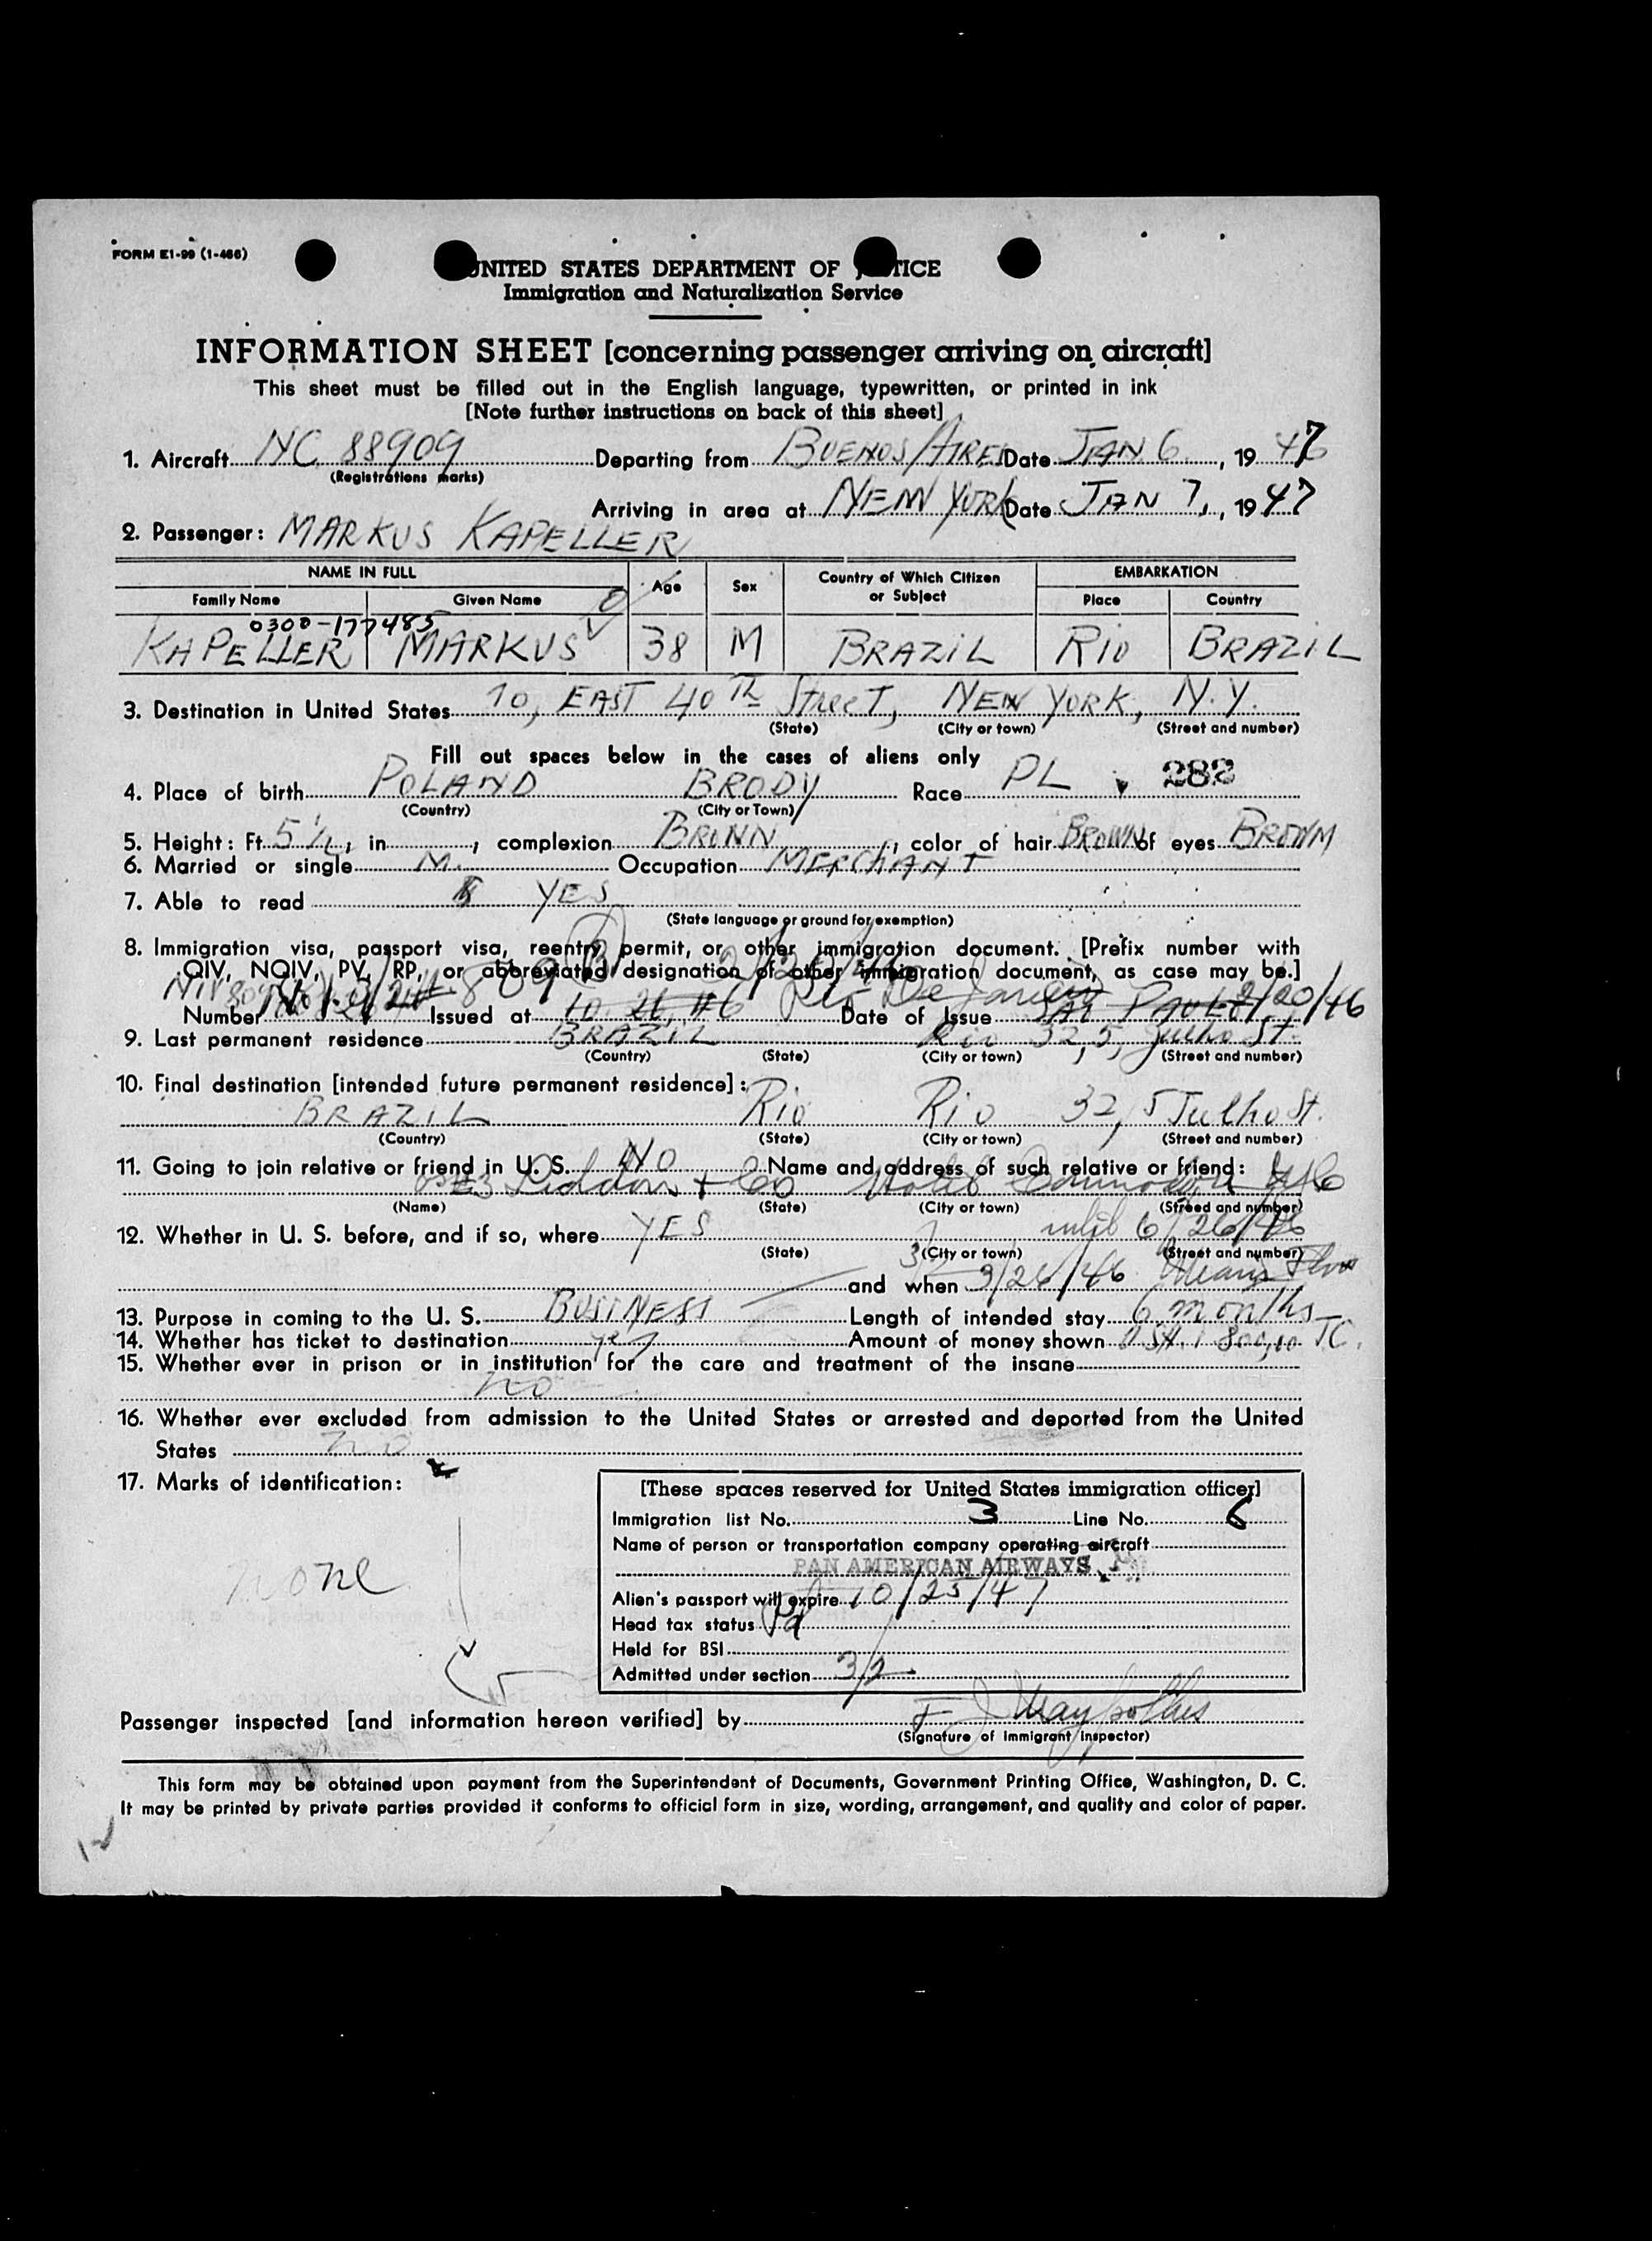 FORM E1-99 (1-466)
UNITED STATES DEPARTMENT OF J TICE
Immigration and Naturalization Service
INFORMATION SHEET [concerning passenger arriving on aircraft]
This sheet must be filled out in the English language, typewritten, or printed in ink
[Note further instructions on back of this sheet]
1. Aircraft NC 88909 Departing from BUENOS AIRES Date JAN 6, 1947
(Registrations marks)
Arriving in area at NEW YORK Date JAN 7, 1947
2. Passenger: MARKUS KAPELLER
NAME IN FULL Age Sex Country of Which Citizen or Subject EMBARKATION
Family Name Given Name Place Country
0300-177485
KAPELLER MARKUS 38 M BRAZIL RIO BRAZIL
3. Destination in United States 10, EAST 40TH Street, NEW YORK, N.Y.
(State) (City or town) (Street and number)
Fill out spaces below in the cases of aliens only
4. Place of birth POLAND BRODY Race PL 282
(Country) (City or Town)
5. Height: Ft. 5 1/2, in , complexion BROWN, color of hair BROWN of eyes BROWN
6. Married or single M. Occupation MERCHANT
7. Able to read YES
(State language or ground for exemption)
8. Immigration visa, passport visa, reentry permit, or other immigration document. [Prefix number with
QIV, NQIV, PV, RP, or abbreviated designation of other immigration document, as case may be.]
Number Issued at Rio De Janeiro Date of Issue 2/20/46
9. Last permanent residence BRAZIL Rio 32, 5, Julho St.
(Country) (State) (City or town) (Street and number)
10. Final destination [intended future permanent residece]:
BRAZIL Rio Rio 32, 5 Julho St.
(Country) (State) (City or town) (Street and number)
11. Going to join relative or friend in U. S. NO Name and address of such relative or friend:
& Co Hotel
(Name) (State) (City or town) (Streed and number)
12. Whether in U. S. before, and if so, where YES until 6/26/46
(State) (City or town) (Street and number)
and when 3/26/46
13. Purpose in coming to the U. S. BUSINESS Length of intended stay 6 months
14. Whether has ticket to destination yes Amount of money shown 800,00 TC.
15. Whether ever in prison or in institution for the care and treatment of the insane
no
16. Whether ever excluded from admission to the United States or arrested and deported from the United
States no
17. Marks of identification:
none
[These spaces reserved for United States immigration officer]
Immigration list No. 3 Line No. 6
Name of person or transportation company operating aircraft
PAN AMERICAN AIRWAYS
Alien's passport will expire 10/25/47
Head tax status Pd
Held for BSI
Admitted under section 3/2
Passenger inspected [and information hereon verified] by
(Signature of Immigrant Inspector)
This form may be obtained upon payment from the Superintendent of Documents, Government Printing Office, Washington, D. C.
It may be printed by private parties provided it conforms to official form in size, wording, arrangement, and quality and color of paper.